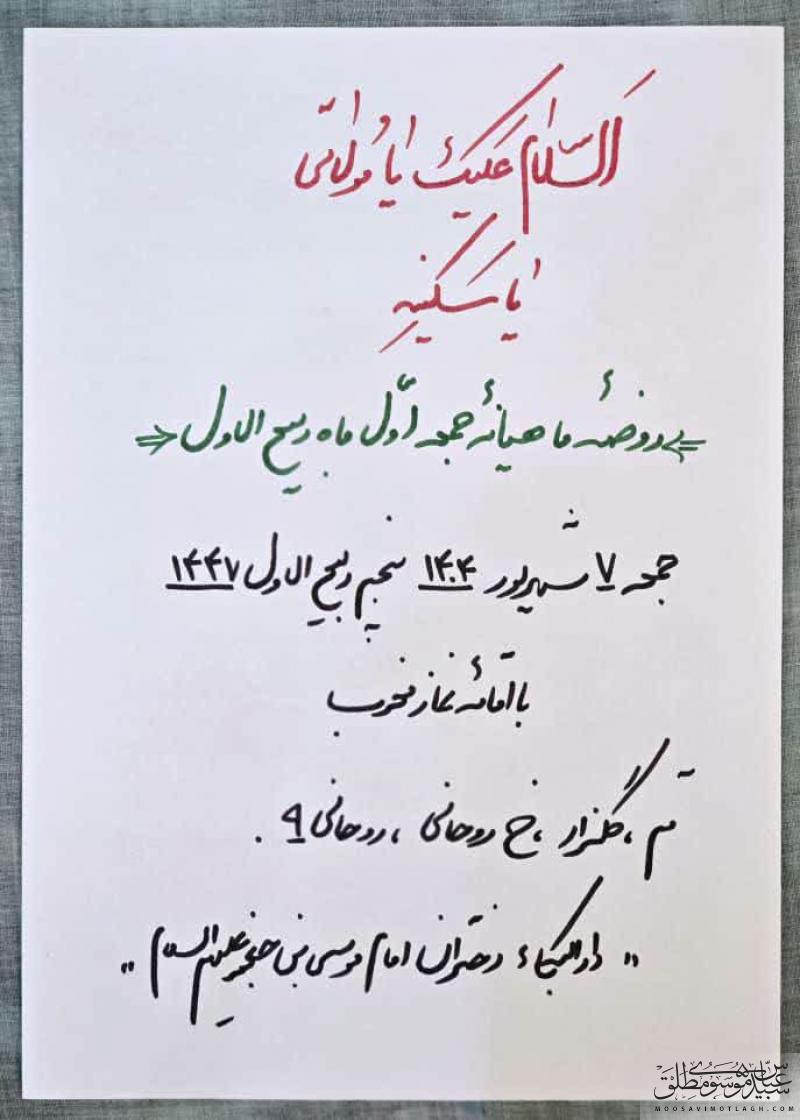 السّلام علیک یا مولاتی
یا سکینه
روضهٔ ماهیانهٔ جمعه اوّل ماه ربیع الاول
جمعه ۷ شهریور ۱۴۰۴ پنجم ربیع الاول ۱۴۴۷
با اقامهٔ نماز مغرب
قم ، گلزار ، خ روحانی ، روحانی ۹ .
" دارالبکاء دختران امام موسی بن جعفر علیهم السلام "
سید عباس موسوی مطلق
MOOSAVIMOTLAGH.COM